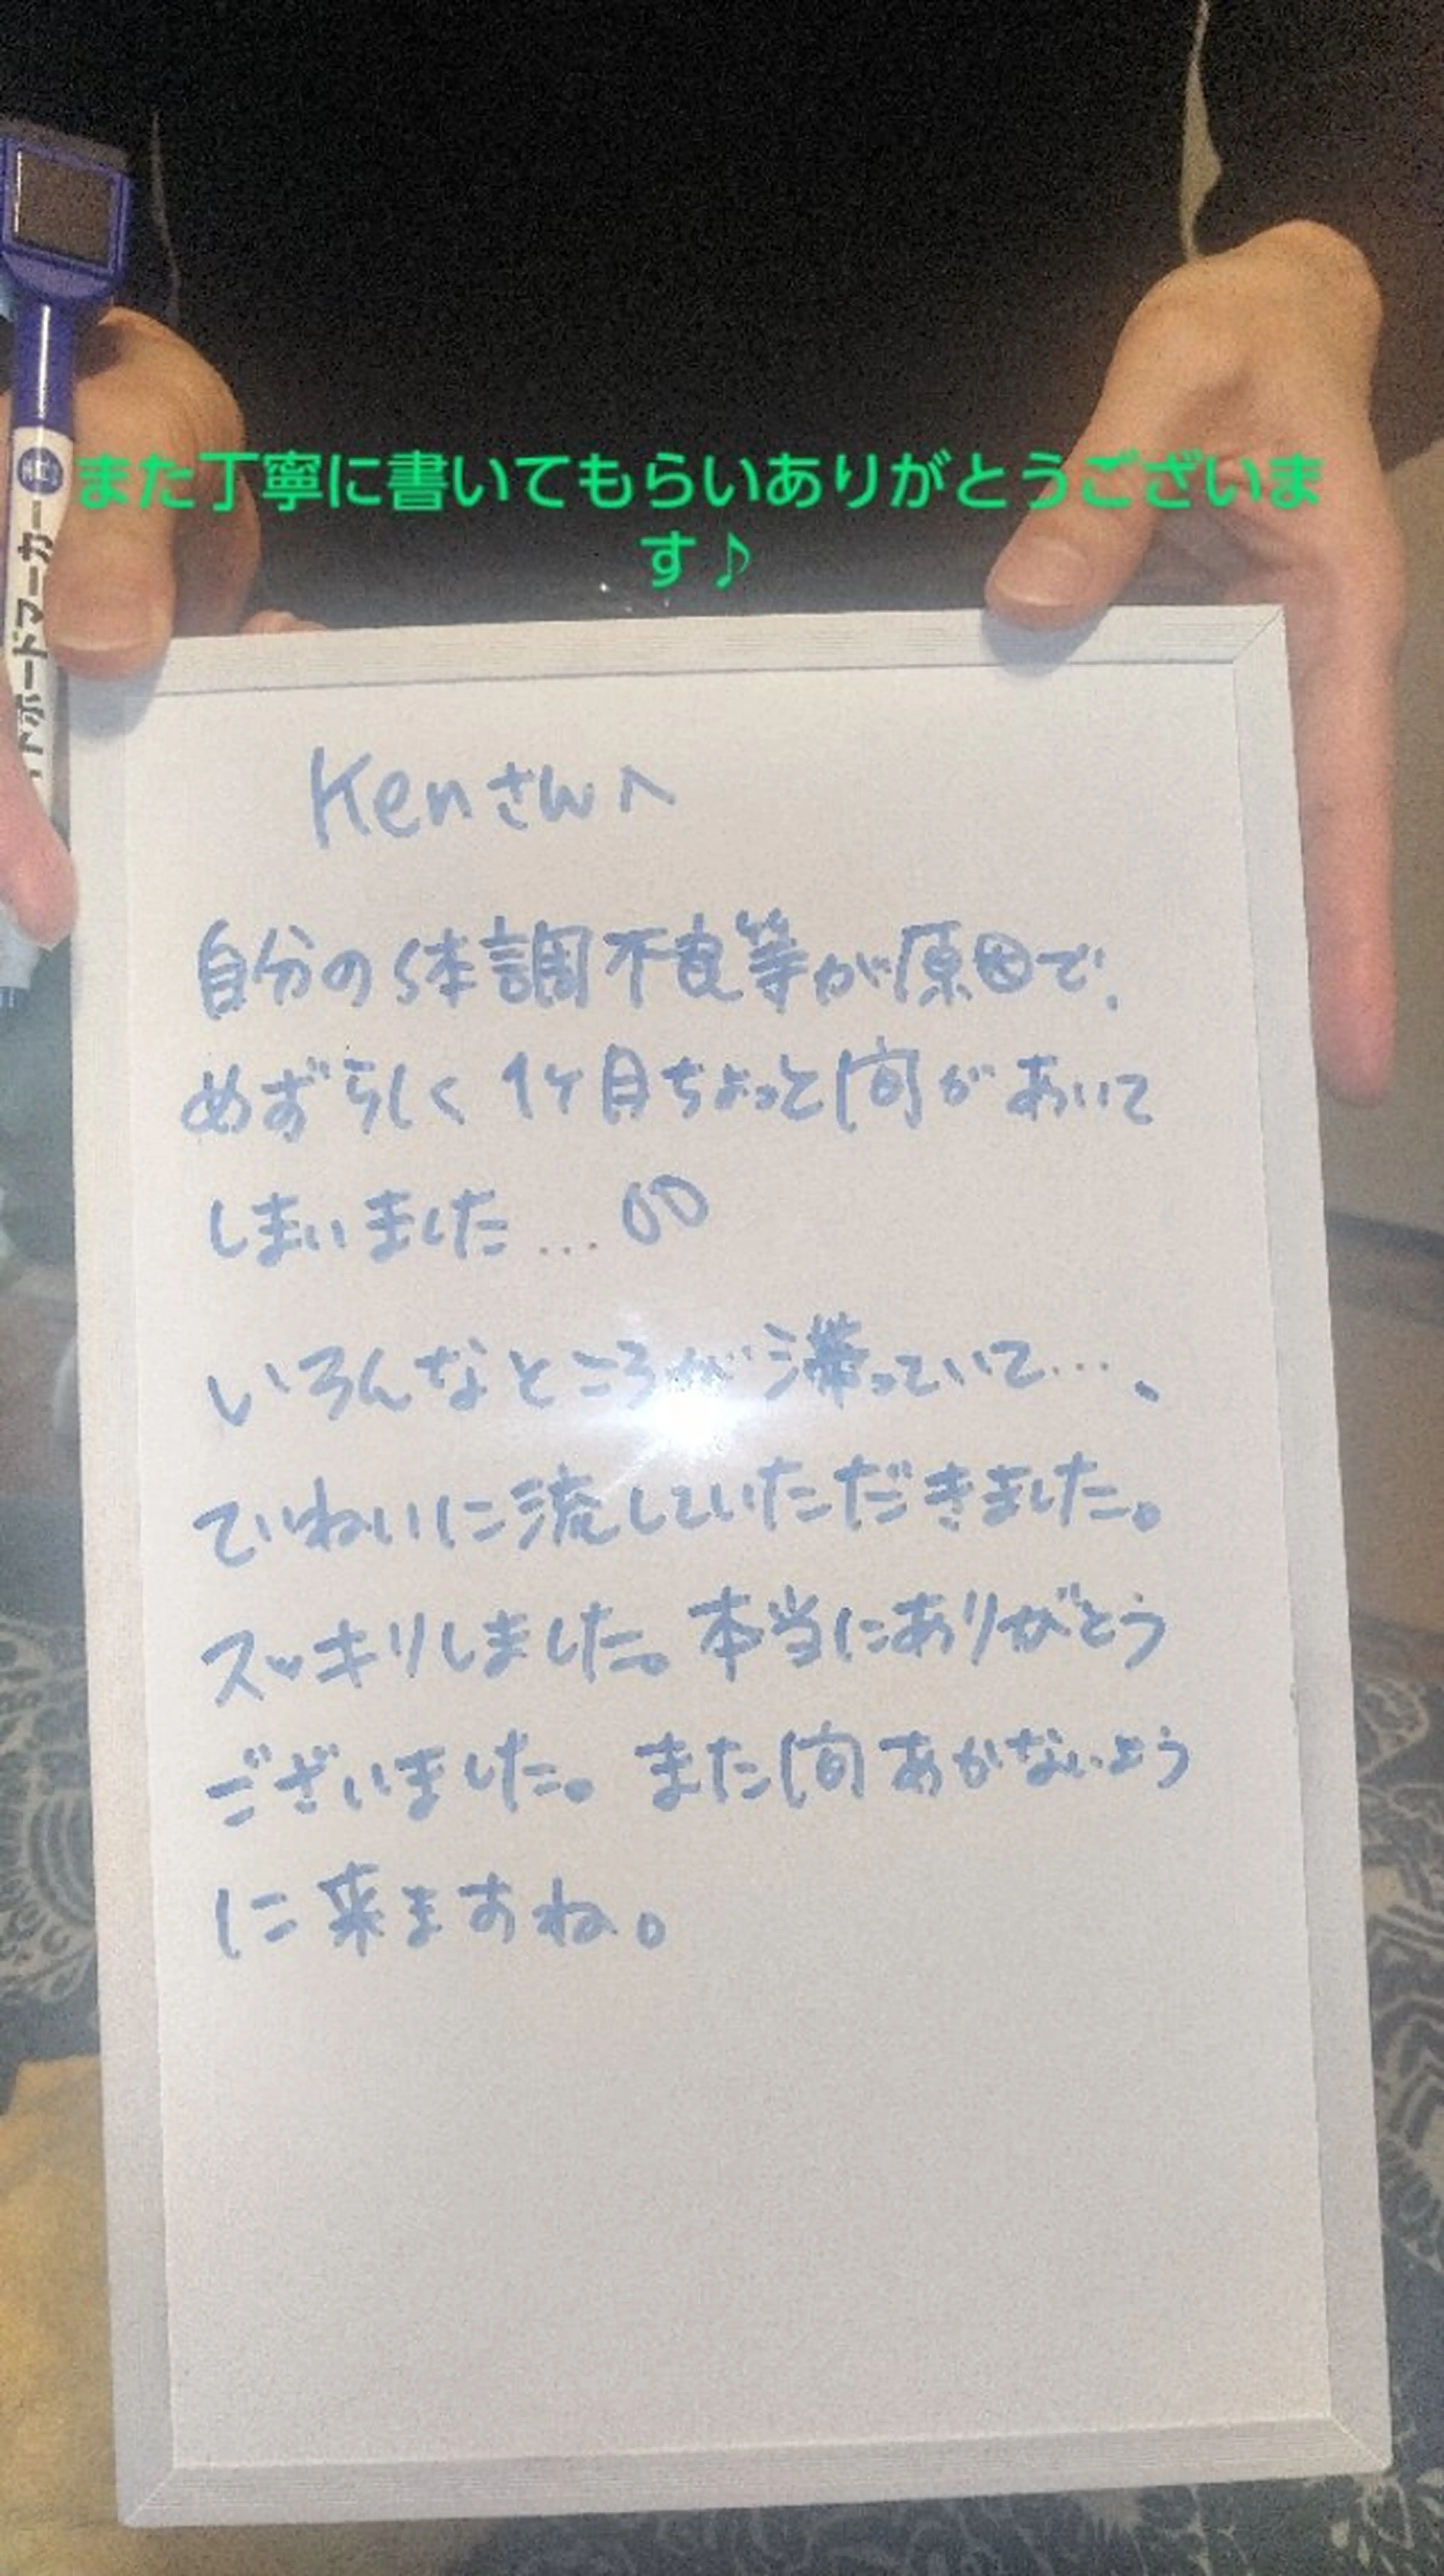 また丁寧に書いてもらいありがとうございま
す♪
青
ボードマーカー
Kenさんへ
自分の体調不良等が原因で、
めずらしく1ヶ月ちょっと間があいて
しまいました...
いろんなところが滞っていて...、
ていねいに流していただきました。
スッキリしました。本当にありがとう
ございました。また間あかないよう
に来ますね。